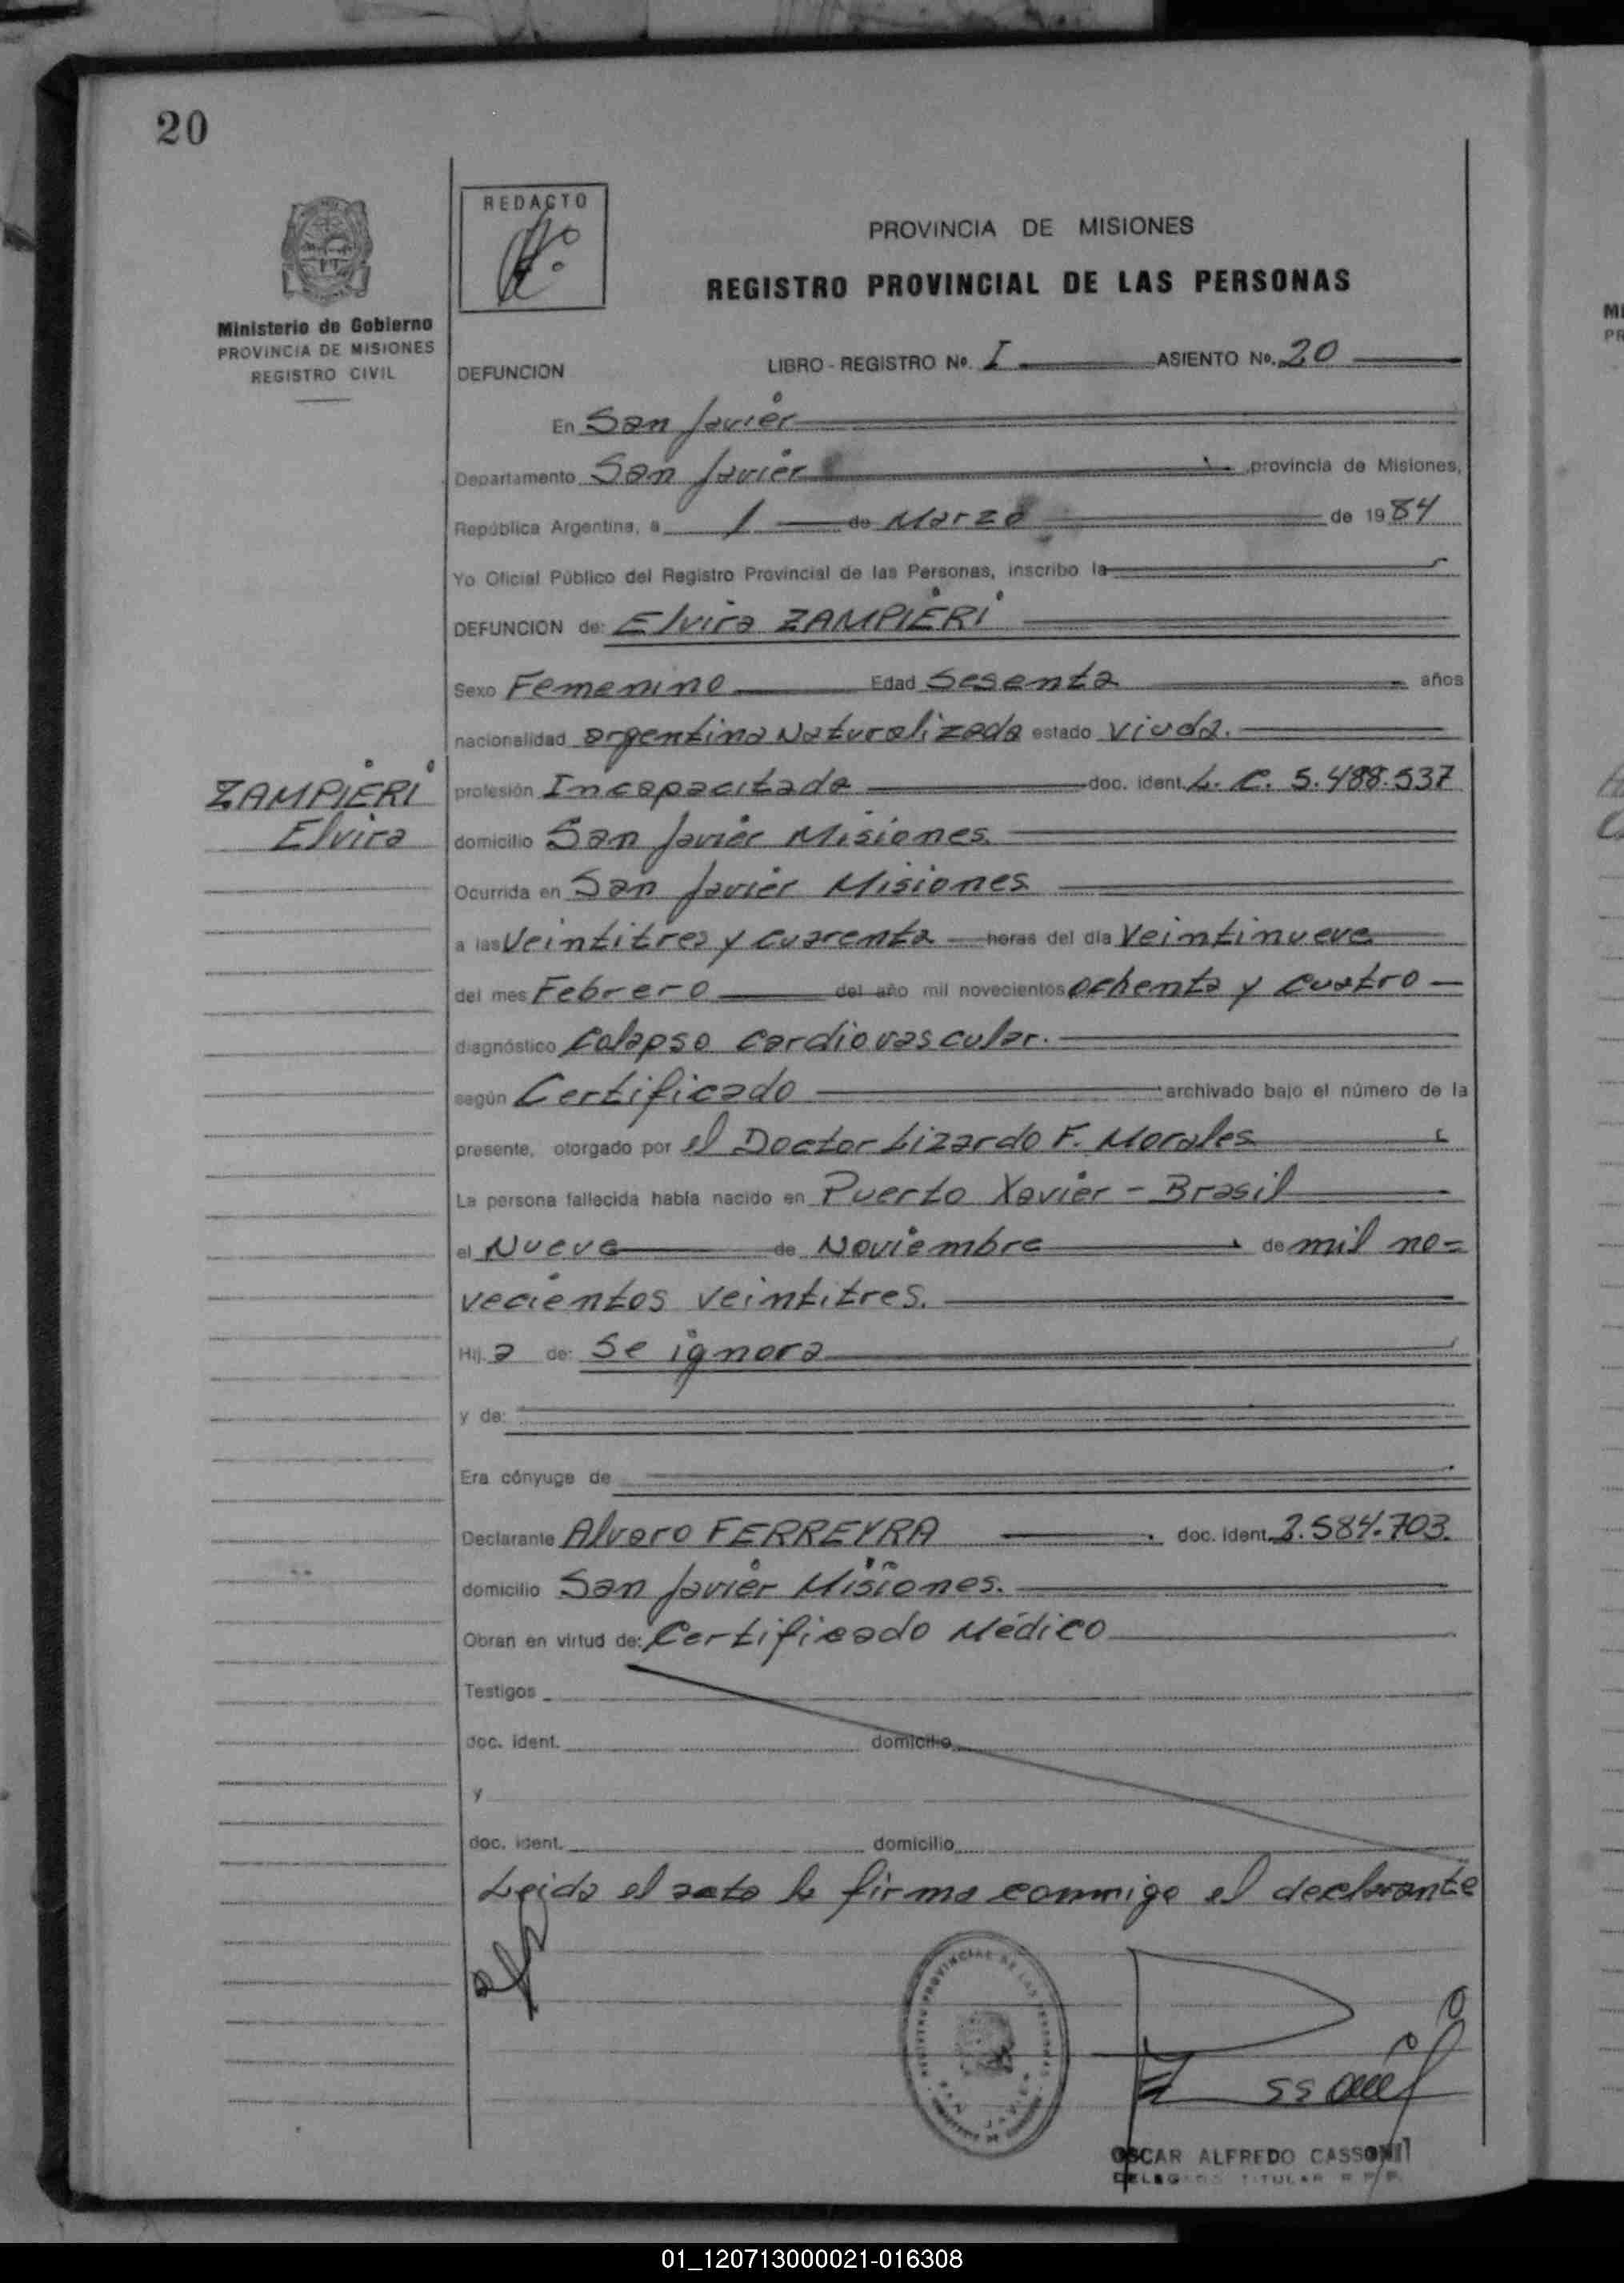 20
REDACTO
PROVINCIA DE MISIONES
REGISTRO PROVINCIAL DE LAS PERSONAS
Ministerio de Gobierno
PROVINCIA DE MISIONES
REGISTRO CIVIL
DEFUNCION LIBRO - REGISTRO Nº. I ASIENTO Nº. 20
En San Javier
Departamento San Javier provincia de Misiones,
República Argentina, a 1 de Marzo de 1984
Yo Oficial Público del Registro Provincial de las Personas, inscribo la
DEFUNCION de: Elvira ZAMPIERI
Sexo Femenino Edad Sesenta años
nacionalidad argentina Naturalizada estado viuda.
ZAMPIERI
Elvira
profesión Incapacitada doc. ident. L. C. 5.488.537
domicilio San Javier Misiones.
Ocurrida en San Javier Misiones
a las Veintitres y cuarenta horas del día Veintinueve
del mes Febrero del año mil novecientos ochenta y cuatro
diagnóstico Colapso cardiovascular.
según Certificado archivado bajo el número de la
presente, otorgado por el Doctor Lizardo F. Morales
La persona fallecida había nacido en Puerto Xavier - Brasil
el Nueve de Noviembre de mil no=
vecientos veintitres.
Hij.a de: Se ignora
y de:
Era cónyuge de
Declarante Alvaro FERREYRA doc. ident. 2.584.703.
domicilio San Javier Misiones.
Obran en virtud de: Certificado Médico
Testigos
doc. ident. domicilio
y
doc. ident. domicilio
Leida el acta la firma conmigo el declarante
OSCAR ALFREDO CASSONI
DELEGADO TITULAR R P P
01_120713000021-016308